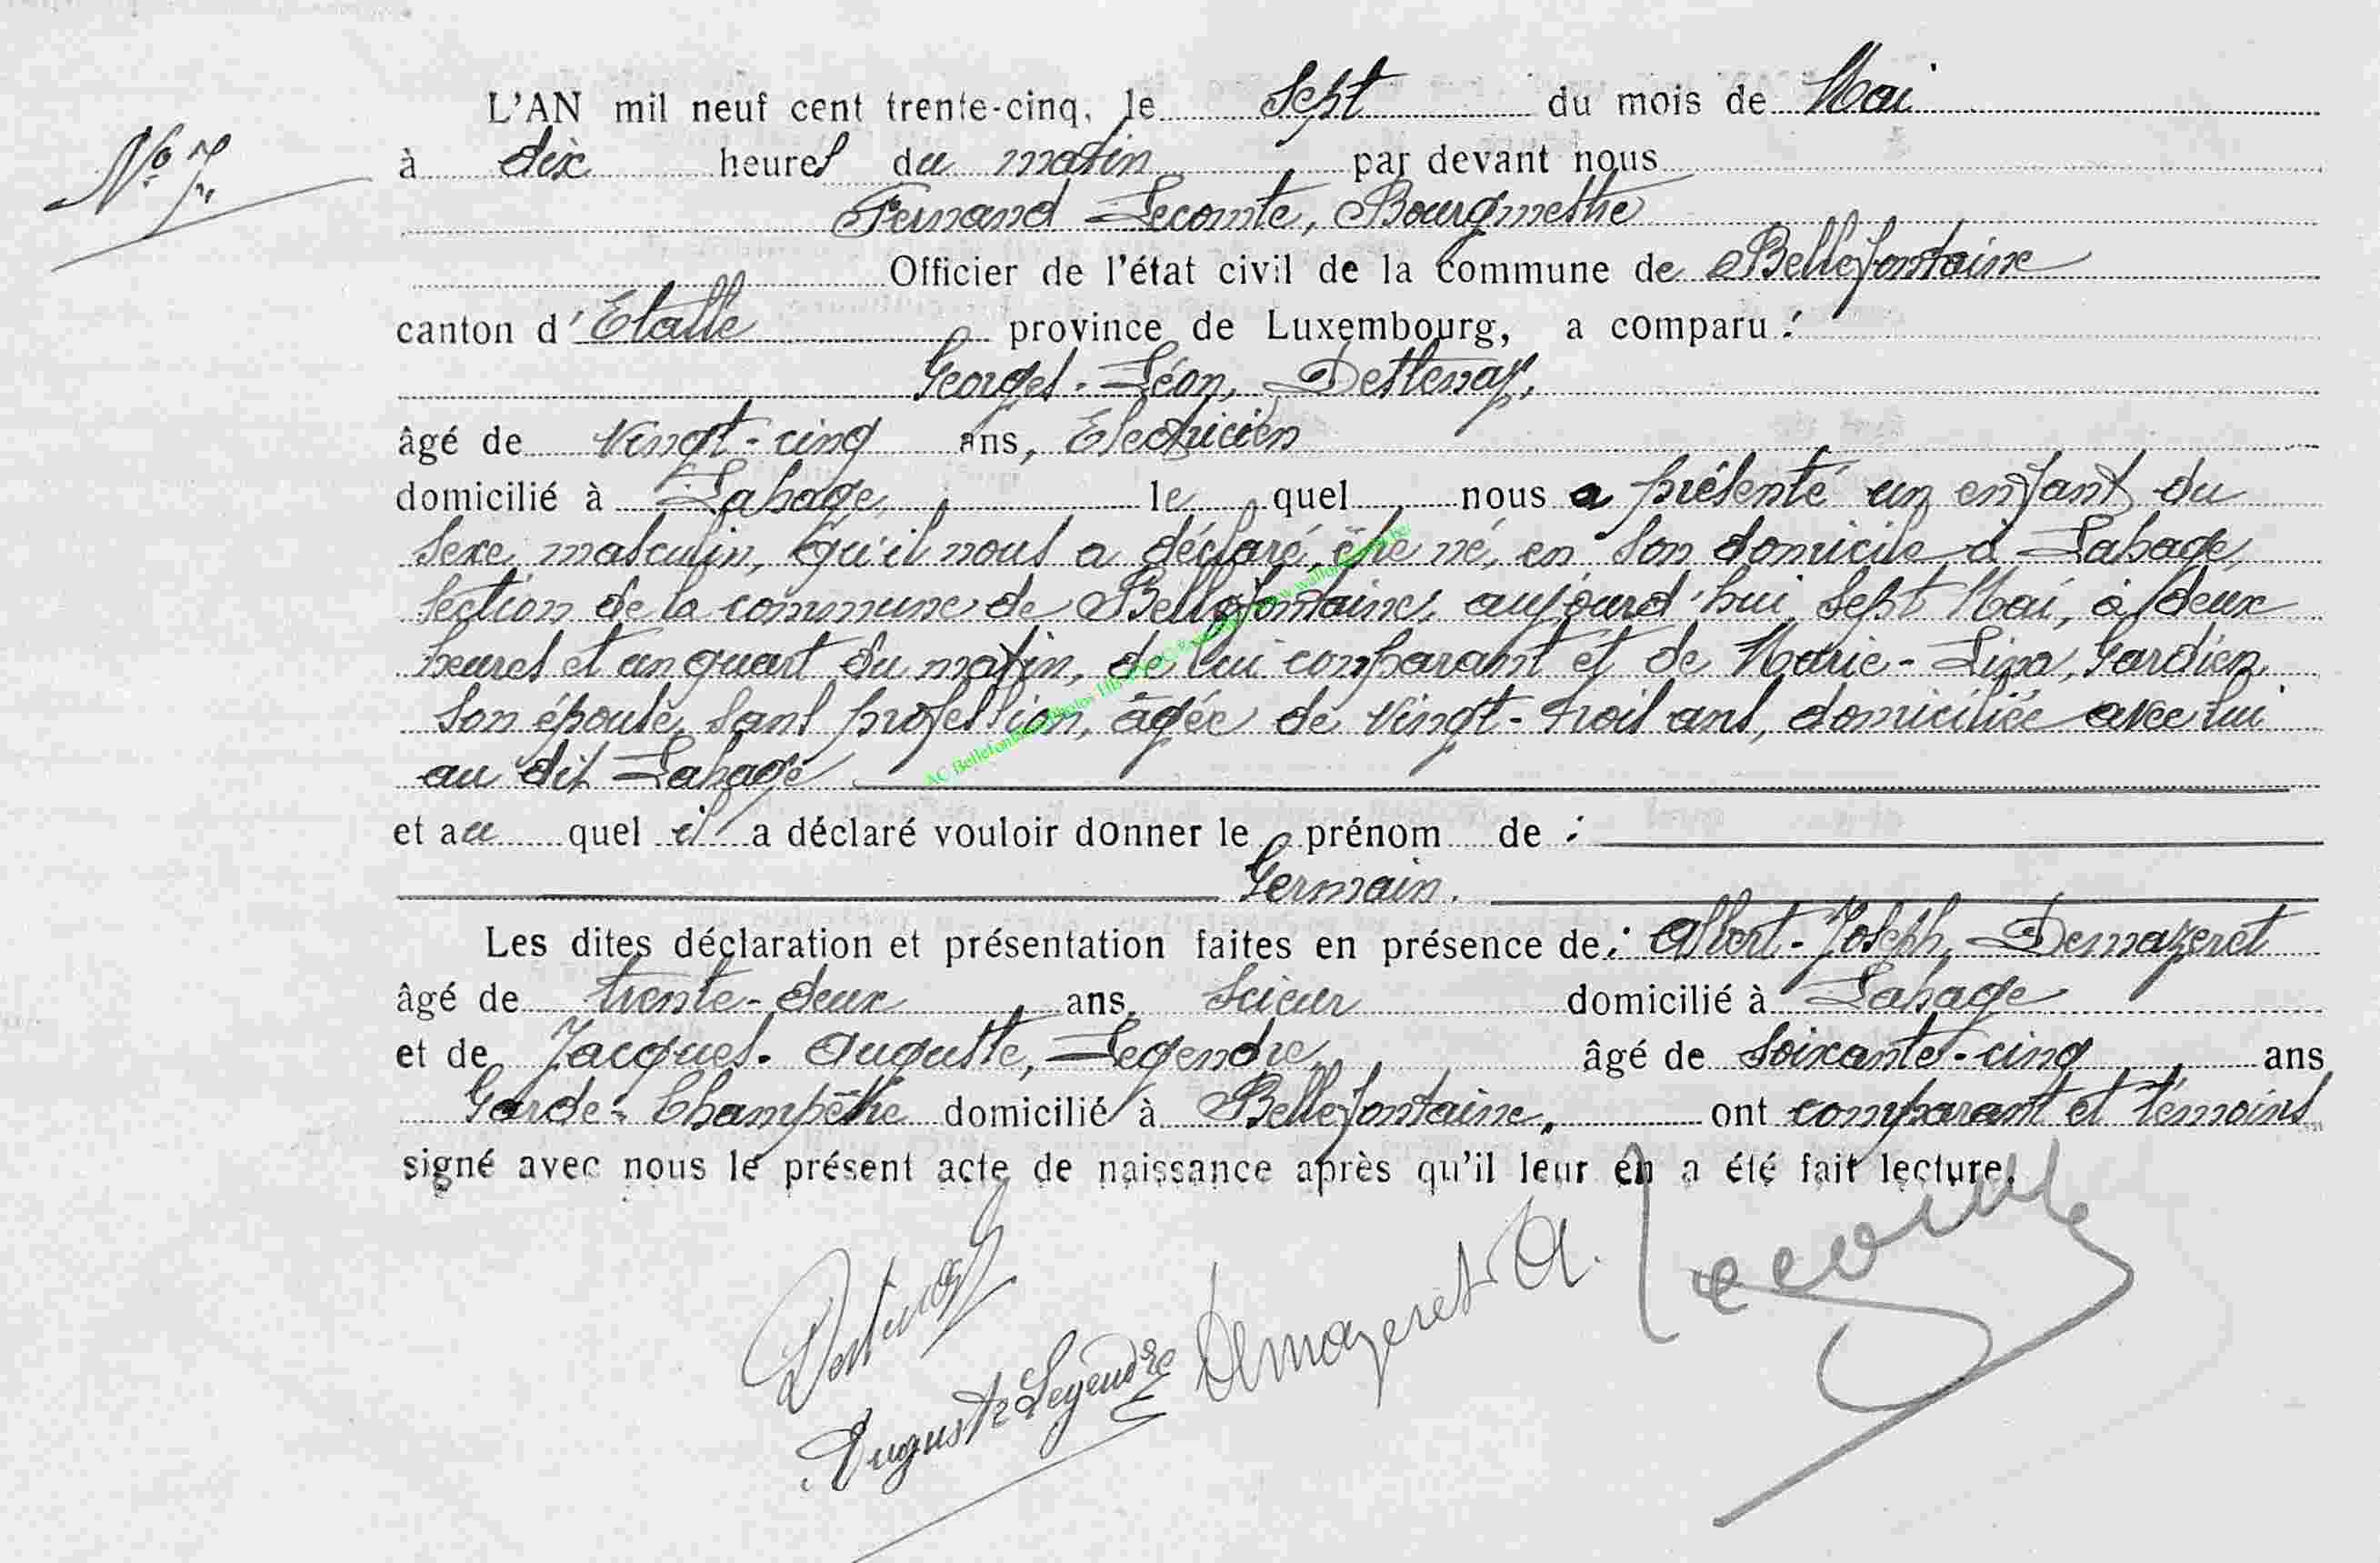 L'AN mil neuf cent trente-cinq, le Sept du mois de Mai
N° 7.
à dix heures du matin par devant nous
Fernand Lecomte, Bourgmestre
Officier de l'état civil de la commune de Bellefontaine
canton d'Etalle province de Luxembourg, a comparu :
Georges-Léon, Destenay,
âgé de vingt-cinq ans, Electricien
domicilié à Lahage, le quel nous a présenté un enfant du
sexe masculin, qu'il nous a déclaré être né, en son domicile à Lahage,
section de la commune de Bellefontaine, aujourd'hui sept Mai, à deux
heures et un quart du matin, de lui comparant et de Marie-Lina, Gardien,
son épouse, sans profession, âgée de vingt-trois ans, domiciliée avec lui
au dit Lahage
AC Bellefontaine Photos
et au quel il a déclaré vouloir donner le prénom de :
Germain.
Les dites déclaration et présentation faites en présence de : Albert-Joseph, Demazeret
âgé de trente-deux ans, Scieur domicilié à Lahage
et de Jacques-Auguste, Legendre âgé de soixante-cinq ans
Garde-Champêtre domicilié à Bellefontaine, ont comparant et témoins
signé avec nous le présent acte de naissance après qu'il leur en a été fait lecture.
Destenay
Auguste Legendre
Demazeret A.
Lecomte